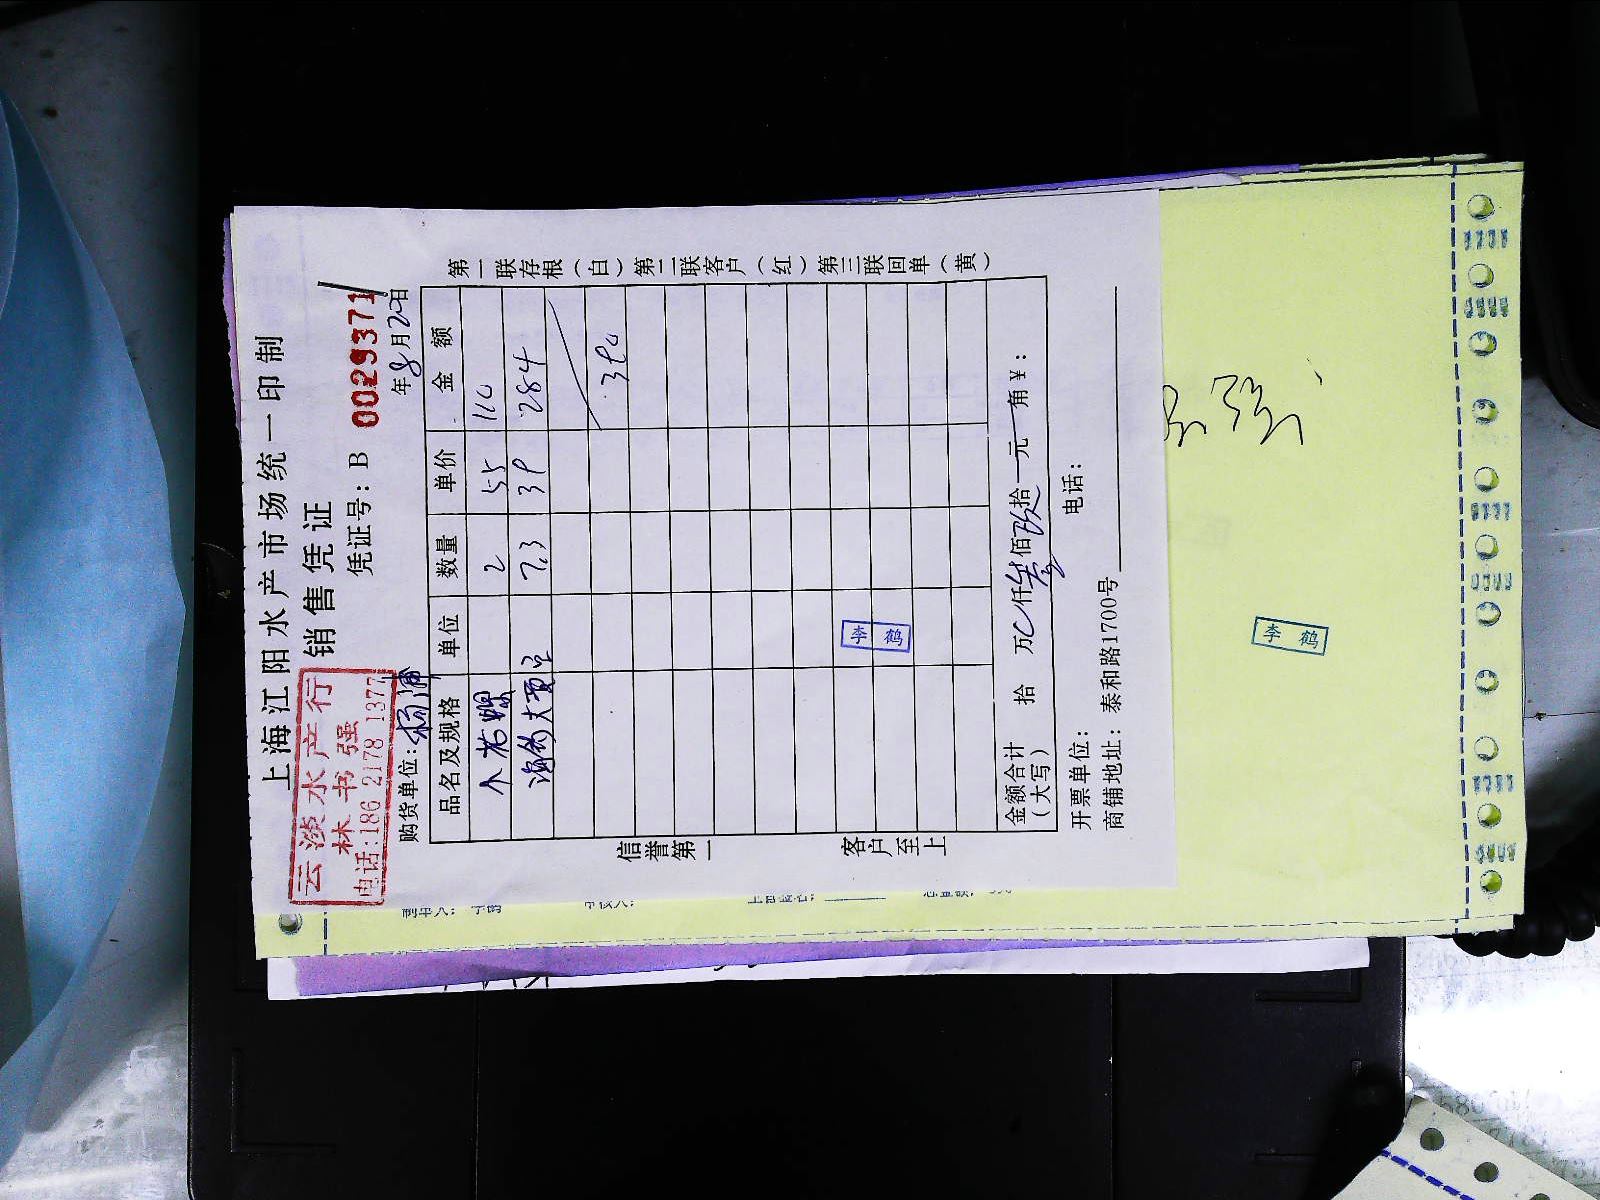 上海江阳水产市场统一印制
销售凭证
凭证号：B 0029371
云淡水产行
林书强
电话:186 2178 1377
购货单位：杨浦
年8月20日
品名及规格 单位 数量 单价 金额
2 55 110
海钓大黄 7.3 39 284
394
金额合计（大写） 拾 万0仟叁佰玖拾 元 角￥：
开票单位： 电话：
商铺地址：泰和路1700号
第一联存根（白）第二联客户（红）第三联回单（黄）
信誉第一
客户至上
李鹤
李鹤